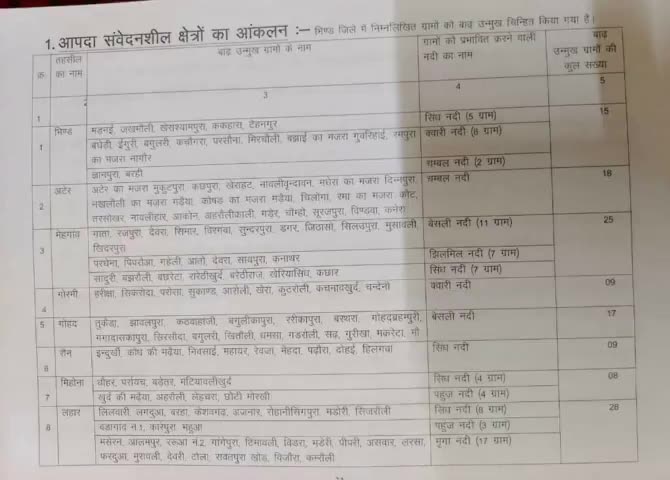 1. आपदा संवेदनशील क्षेत्रों का आंकलन :– भिण्ड जिले में निम्नलिखित ग्रामों को बाढ़ उन्मुख चिन्हित किया गया है।
क्र. तहसील का नाम बाढ़ उन्मुख ग्रामों के नाम ग्रामों को प्रभावित करने वाली नदी का नाम बाढ़ उन्मुख ग्रामों की कुल संख्या
1 2 3 4 5
1 भिण्ड मडनई, जखमौली, खेराश्यामपुरा, ककहारा, टेहनगुर सिंध नदी (5 ग्राम) 15
बघेडी, ईगुरी, बगुलरी, कचोंगरा, परसोना, मिरचौली, का मजरा गुवरिहाई, रमपुरा क्वारी नदी (8 ग्राम)
का मजरा नागौर
ज्ञानपुरा, बरही चम्बल नदी (2 ग्राम)
2 अटेर अटेर का मजरा मुकुटपुरा, कछपुरा, खेराहट, नावलीवृन्दावन, मघेरा का मजरा दिन्नपुरा, चम्बल नदी 18
नखलोली का मजरा गढ़ैया, कोषड का मजरा मढ़ैया, चिलोंगा, रमा का मजरा कोट,
तरसोखर, नावलीहार, आकोन, अहरौलीकाली, मडेर, चौम्हो, सूरजपुरा, विण्डवा, कनेरा
3 मेहगांव गाता, रजपुरा, देवरा, सिमार, विरगवां, सुन्दरपुरा, डगर, जिठासो, सिलउपुरा, मुसावली, बेसली नदी (11 ग्राम) 25
खिदरपुरा
परघेना, पिपरोआ, गहेली आतो, देवरा, सायपुरा, कनाथर झिलमिल नदी (7 ग्राम)
सांदुरी, बझरौली, बछरेटा, बरेठीराज, खेरियासिंध, कछार सिंध नदी (7 ग्राम)
4 गोरमी हरीक्षा, सिकरोदा, परोसा, सुकाण्ड, आरोली, खेरा, कुटरोली, कचनावखुर्द, चन्देनी क्वारी नदी 09
5 गोहद तुकेडा, झावलपुरा, कठवाहाजी, बगुलीकापुरा, ररीकापुरा, बरथरा, गोहदब्रहम्पुरी, बेसली नदी 17
मगादासकापुरा, सिरसोदा, बगुलरी, खितौली, धमसा, गडरोली, सढ़, गुरीखा, मकरेटा, मौ
6 रौन इन्दुर्खी, कोंध की मढ़ैया, निवसाई, महायर, रेवजा, मेहदा, पढ़ौरा, दोहई, हिलगवा सिंध नदी 09
7 मिहोना चौहर, परायच, बढ़ेतर, मटियावलीखुर्द सिंध नदी (4 ग्राम) 08
खुर्द की मढ़ैया, अहरौली, लेहचरा, छोटी मोरखी पहुज नदी (4 ग्राम)
8 लहार लिलवारी, लगदुआ, बरहा, केशवगढ़, अजनार, रोहानीसिंगपुरा, मडोरी, सिजरोली सिंध नदी (8 ग्राम) 28
बडागांव न.1, कारेपुरा, महुआ पहुज नदी (3 ग्राम)
मसेरन, आलमपुर, ररूआ न.2, गांगेपुरा, टिमावली, विंडरा, मडेरी, पीपरी, असवार, लरसा, मृगा नदी (17 ग्राम)
फरदुआ, मुरावली, देवरी, टोला, रावतपुरा खोड, चिजौरा, कमरौली